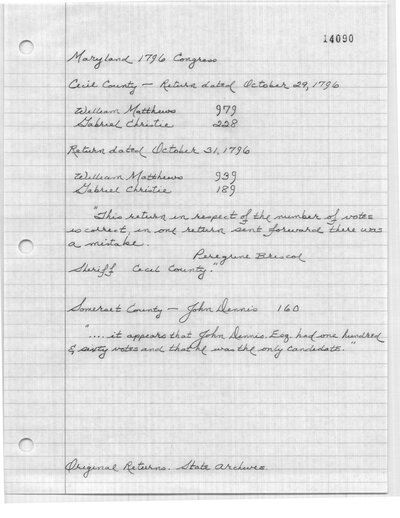 14090
Maryland 1796 Congress
Cecil County — Return dated October 29, 1796
William Matthews 979
Gabriel Christie 228
Return dated October 31, 1796
William Matthews 939
Gabriel Christie 189
"This return in respect of the number of votes
is correct, in one return sent forward there was
a mistake.
Peregrine Briscol
Sheriff Cecil County."
Somerset County — John Dennis 160
".... it appears that John Dennis, Esq. had one hundred
& sixty votes and that he was the only candidate."
Original Returns. State Archives.